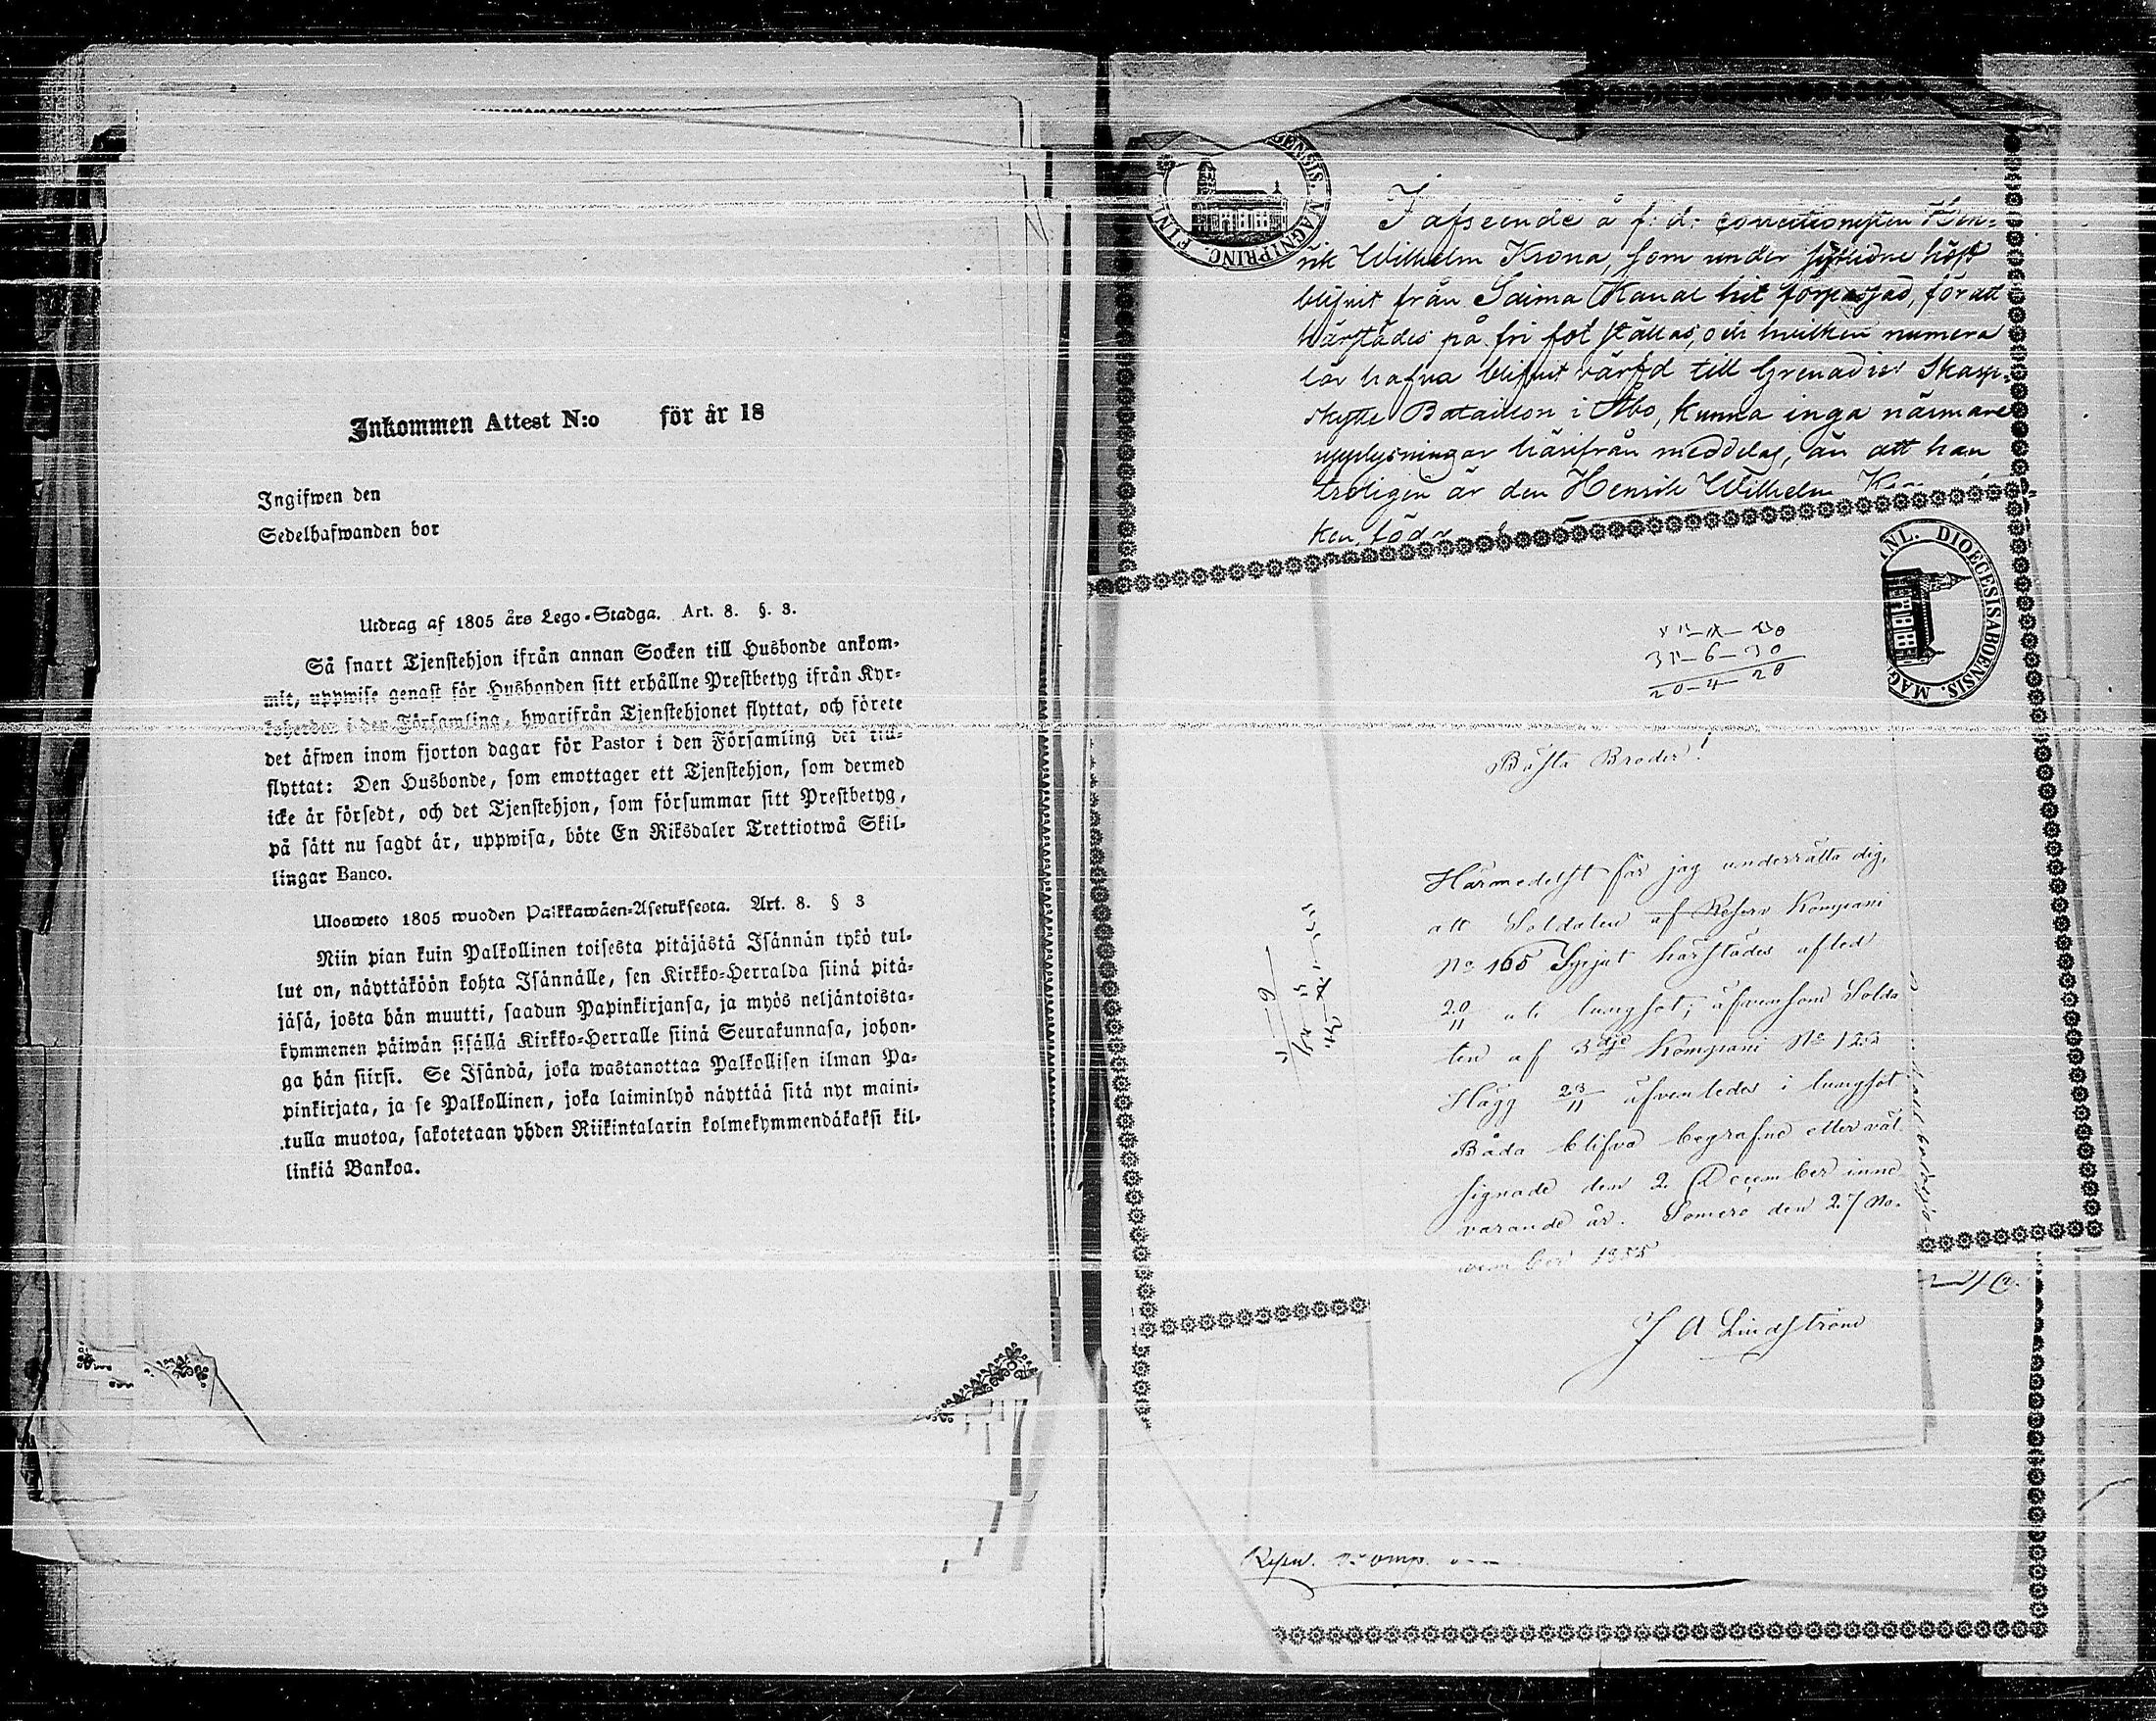 Inkommen Attest N:o för år 18
Ingifwen den
Sedelhafwanden bor
Utdrag af 1805 års Lego-Stadga. Art. 8. §. 3.
Så snart Tjenstehjon ifrån annan Socken till Husbonde ankom-
mit, uppwise genast för Husbonden sitt erhållne Prestbetyg ifrån Kyr-
koherden i den Församling, hwarifrån Tjenstehjonet flyttat, och förete
det äfwen inom fjorton dagar för Pastor i den Församling det till-
flyttat: Den Husbonde, som emottager ett Tjenstehjon, som dermed
icke är försedt, och det Tjenstehjon, som försummar sitt Prestbetyg,
på sätt nu sagdt är, uppwisa, böte En Riksdaler Trettiotwå Skil-
lingar Banco.
Ulosweto 1805 wuoden Palkkawäen-Asetuksesta. Art. 8. § 3
Niin pian kuin Palkollinen toisesta pitäjästä Isännän tykö tul-
lut on, näyttäköön kohta Isännälle, sen Kirkko-Herralda siinä pitä-
jäsä, josta hän muutti, saadun Papinkirjansa, ja myös neljäntoista-
kymmenen päiwän sisällä Kirkko-Herralle siinä Seurakunnasa, johon-
ga hän siirsi. Se Isändä, joka wastanottaa Palkollisen ilman Pa-
pinkirjata, ja se Palkollinen, joka laiminlyö näyttää sitä nyt maini-
tulla muotoa, sakotetaan yhden Riikintalarin kolmekymmendäkaksi kil-
linkiä Bankoa.
FINL ENSIS. MAGNIPRINC.
I afseende å f: d: correctionisten Hen-
rik Wilhelm Krona, som under sistlidne höst
blifvit från Saima Kanal hit förpassad, för att
härstädes på fri fot ställas, och hvilken numera
lär hafva blifvit värfd till Grenadier Skarp-
skytte Bataillon i Åbo, kunna inga närmare
upplysningar härifrån meddelas, än att han
troligen är den Henrik Wilhelm
ken, född
NL. DIOECESIS ABOENSIS. MAG
35-6-30
20-4-28
Bästa Broder!
Härmedelst får jag underrätta dig,
att Soldaten af Reserv Kompani
No 165 Syrjat härstädes afled
20/11 uti lungsot, äfvensom Solda
ten af 3dje Kompani No 123
Hägg 23/11 äfvenledes i lungsot
Båda blifva begrafne eller väl
signade den 2 December inne
varande år. Somero den 27 No-
vember 1855
J A Lindström